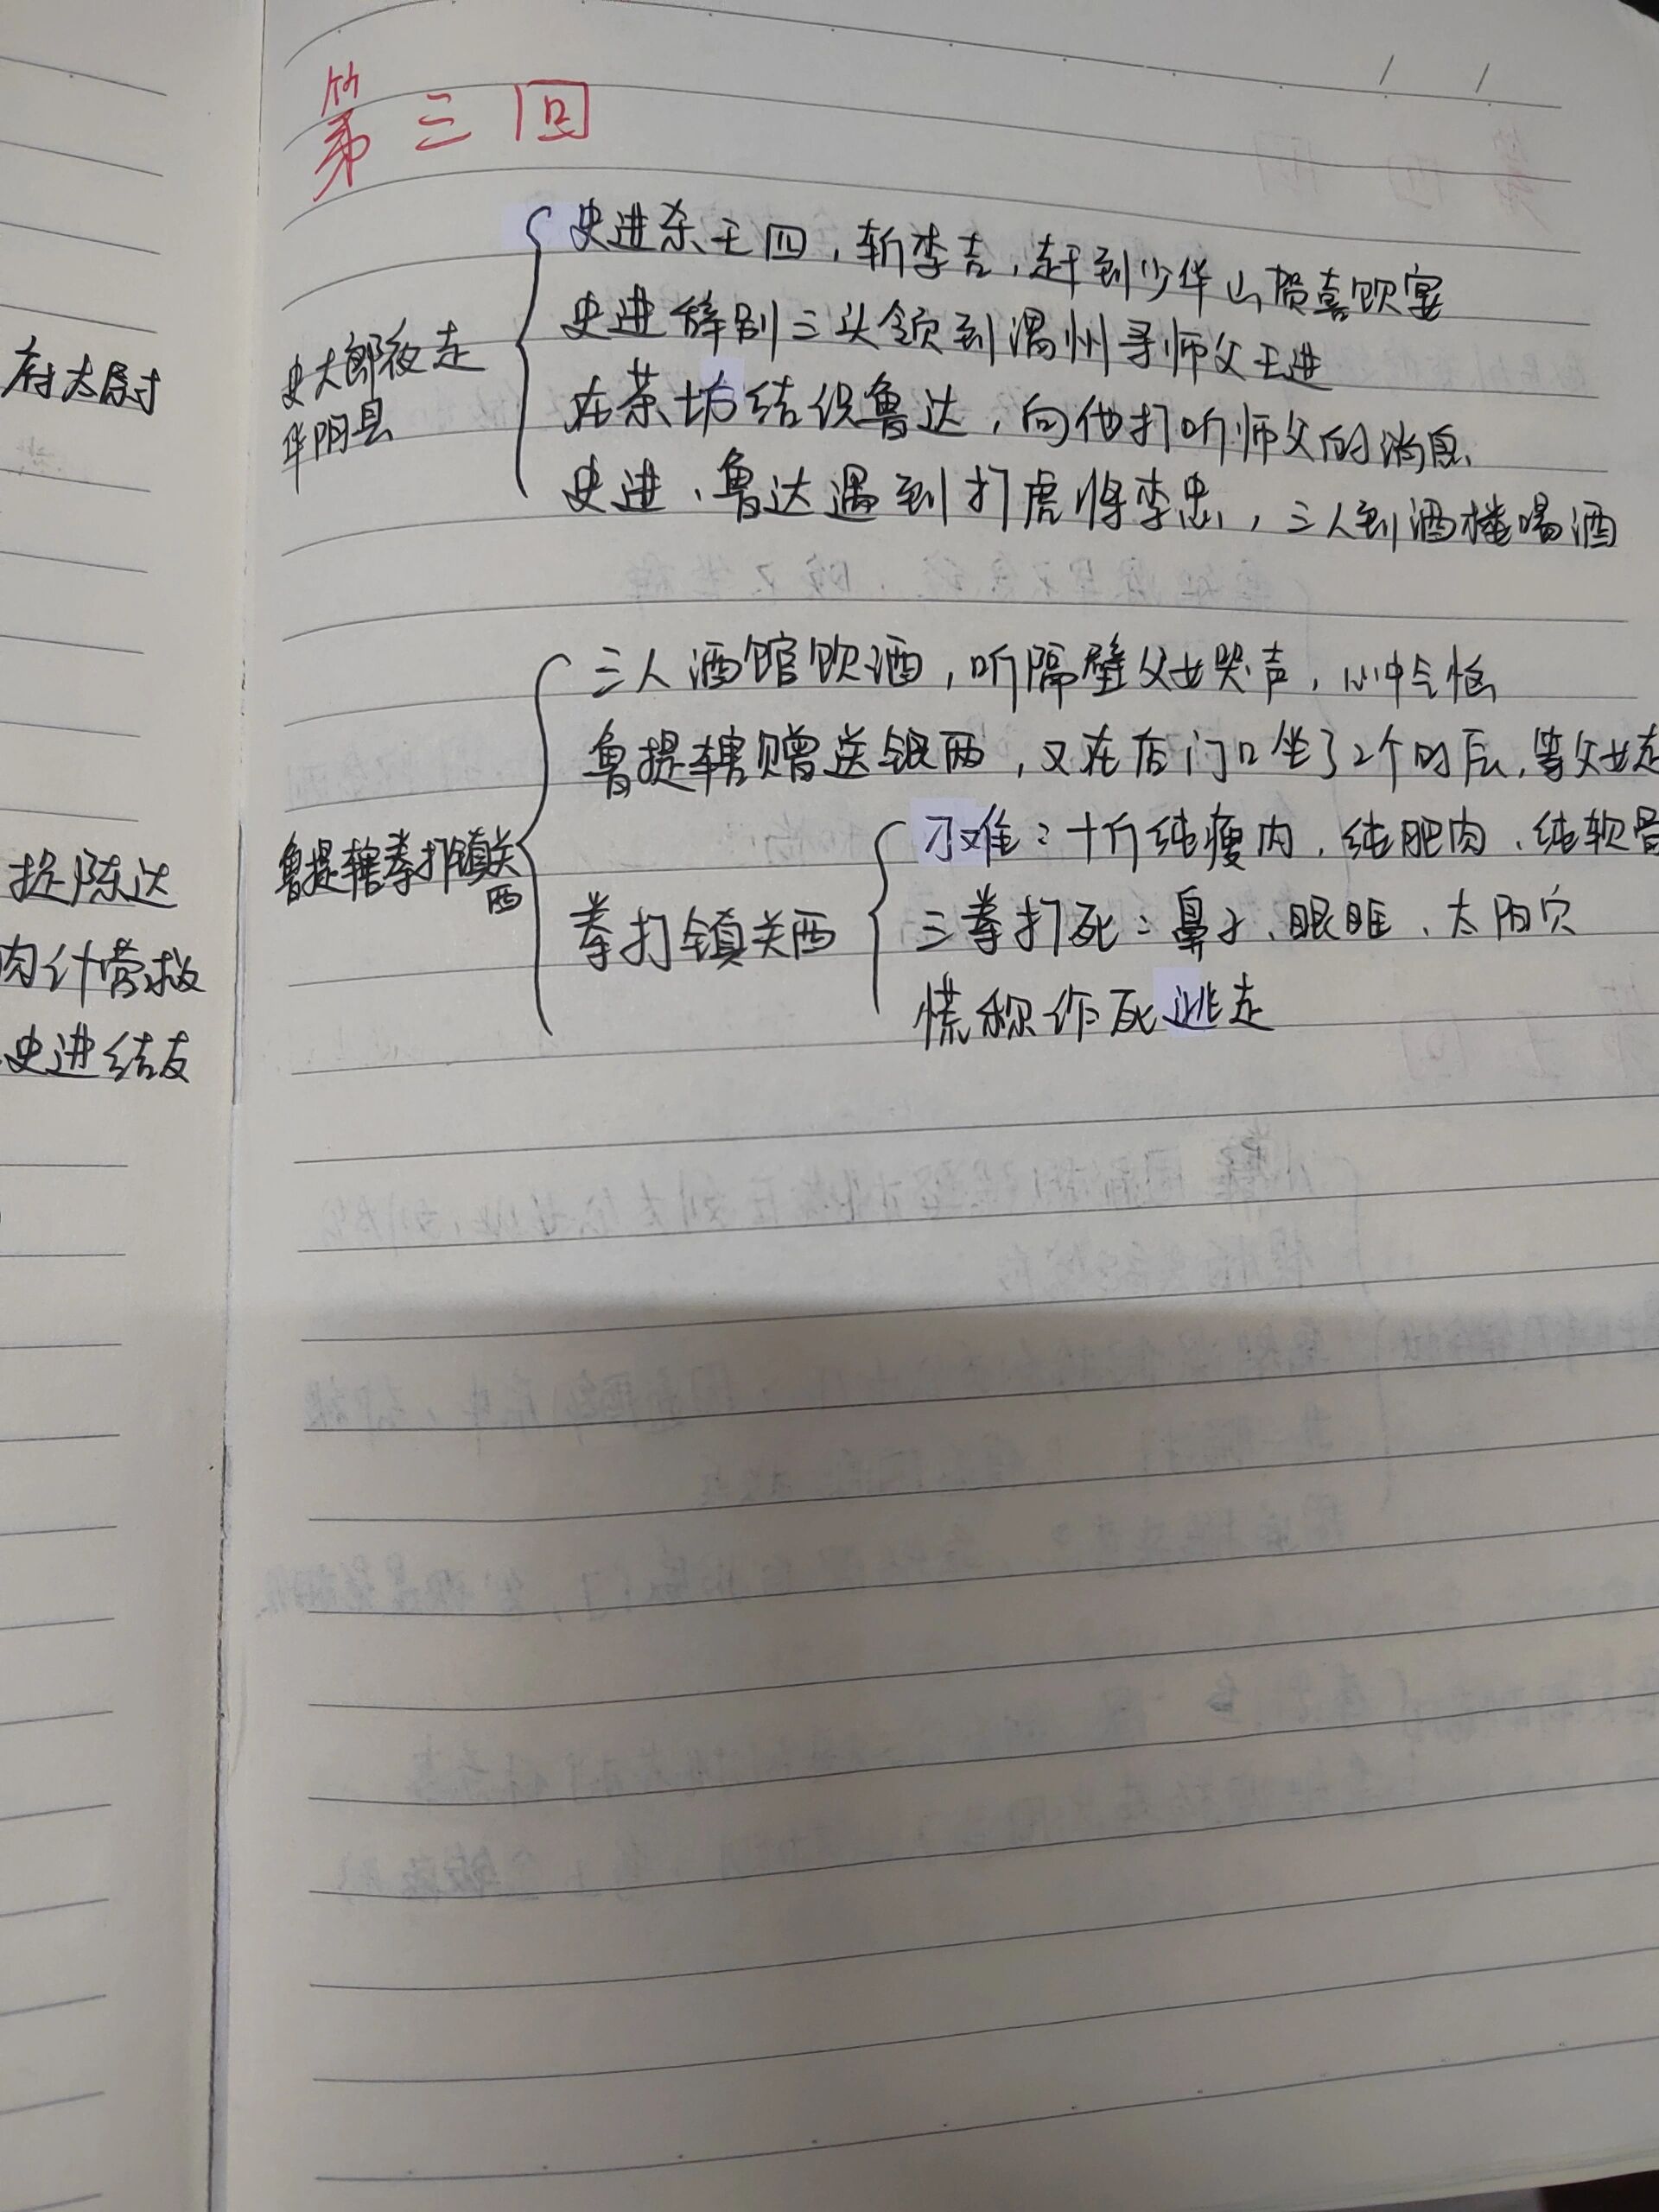 第三回
史进杀王四，斩李吉，赶到少华山贺喜饮宴
史进辞别三头领到渭州寻师父王进
史大郎夜走
华阴县
在茶坊结识鲁达，向他打听师父的消息
史进、鲁达遇到打虎将李忠，三人到酒楼喝酒
三人酒馆饮酒，听隔壁父女哭声，心中气恼
鲁提辖赠送银两，又在店门口坐了2个时辰，等父女走
鲁提辖拳打镇关
西
刁难：十斤纯瘦肉、纯肥肉、纯软骨
拳打镇关西
三拳打死：鼻子、眼眶、太阳穴
慌称诈死逃走
府太尉
捉陈达
肉计营救
史进结友